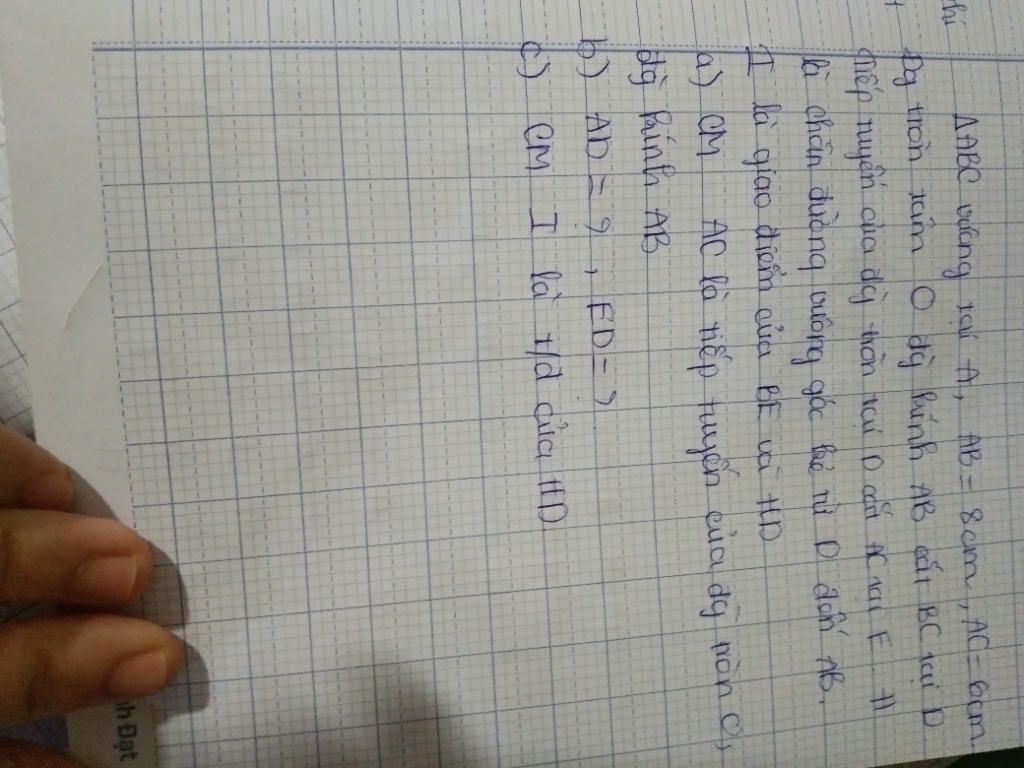 ΔABC vuông tại A, AB = 8cm, AC = 6cm
Đg tròn tâm O đg kính AB cắt BC tại D
Tiếp tuyến của đg tròn tại D cắt AC tại E H
là chân đường vuông góc kẻ từ D đến AB.
I là giao điểm của BE và HD
a) CM AC là tiếp tuyến của đg tròn O,
đg kính AB
b) AD = ?, ED = ?
c) CM I là t/đ của HD
nh Đạt